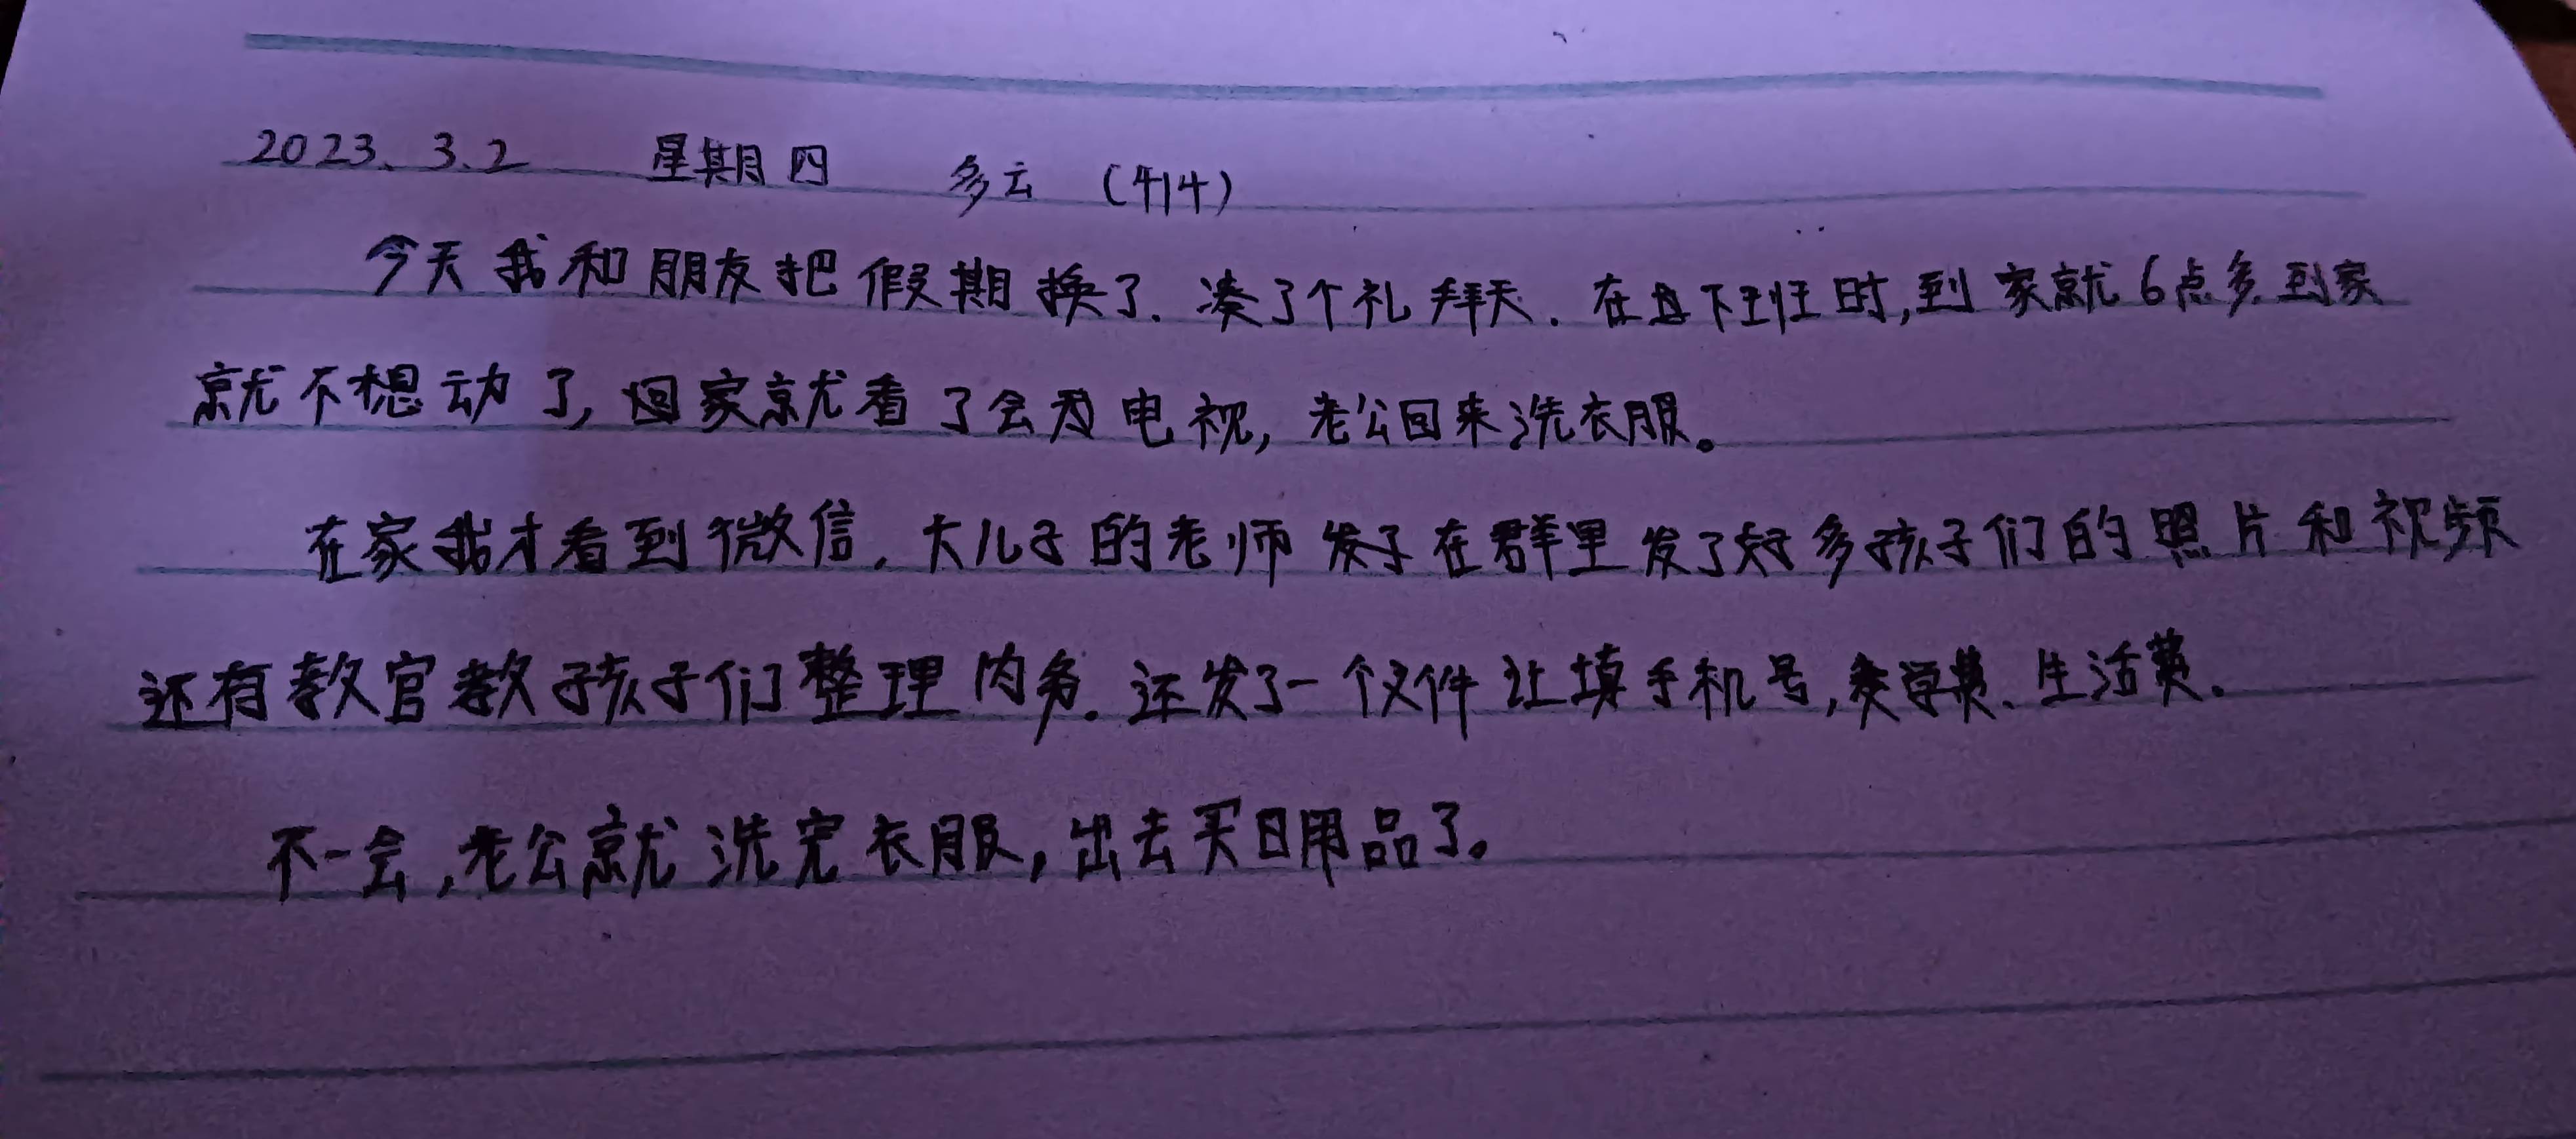 2023.3.2 星期四 多云 (414)
今天我和朋友把假期换了.凑了个礼拜天.在下班时,到家就6点多.到家
就不想动了,回家就看了会电视,老公回来洗衣服。
在家我才看到微信,大儿子的老师发了在群里发了好多孩子们的照片和视频
还有教官教孩子们整理内务.还发了一个文件让填手机号,类学费、生活费.
不一会,老公就洗完衣服,出去买日用品了。